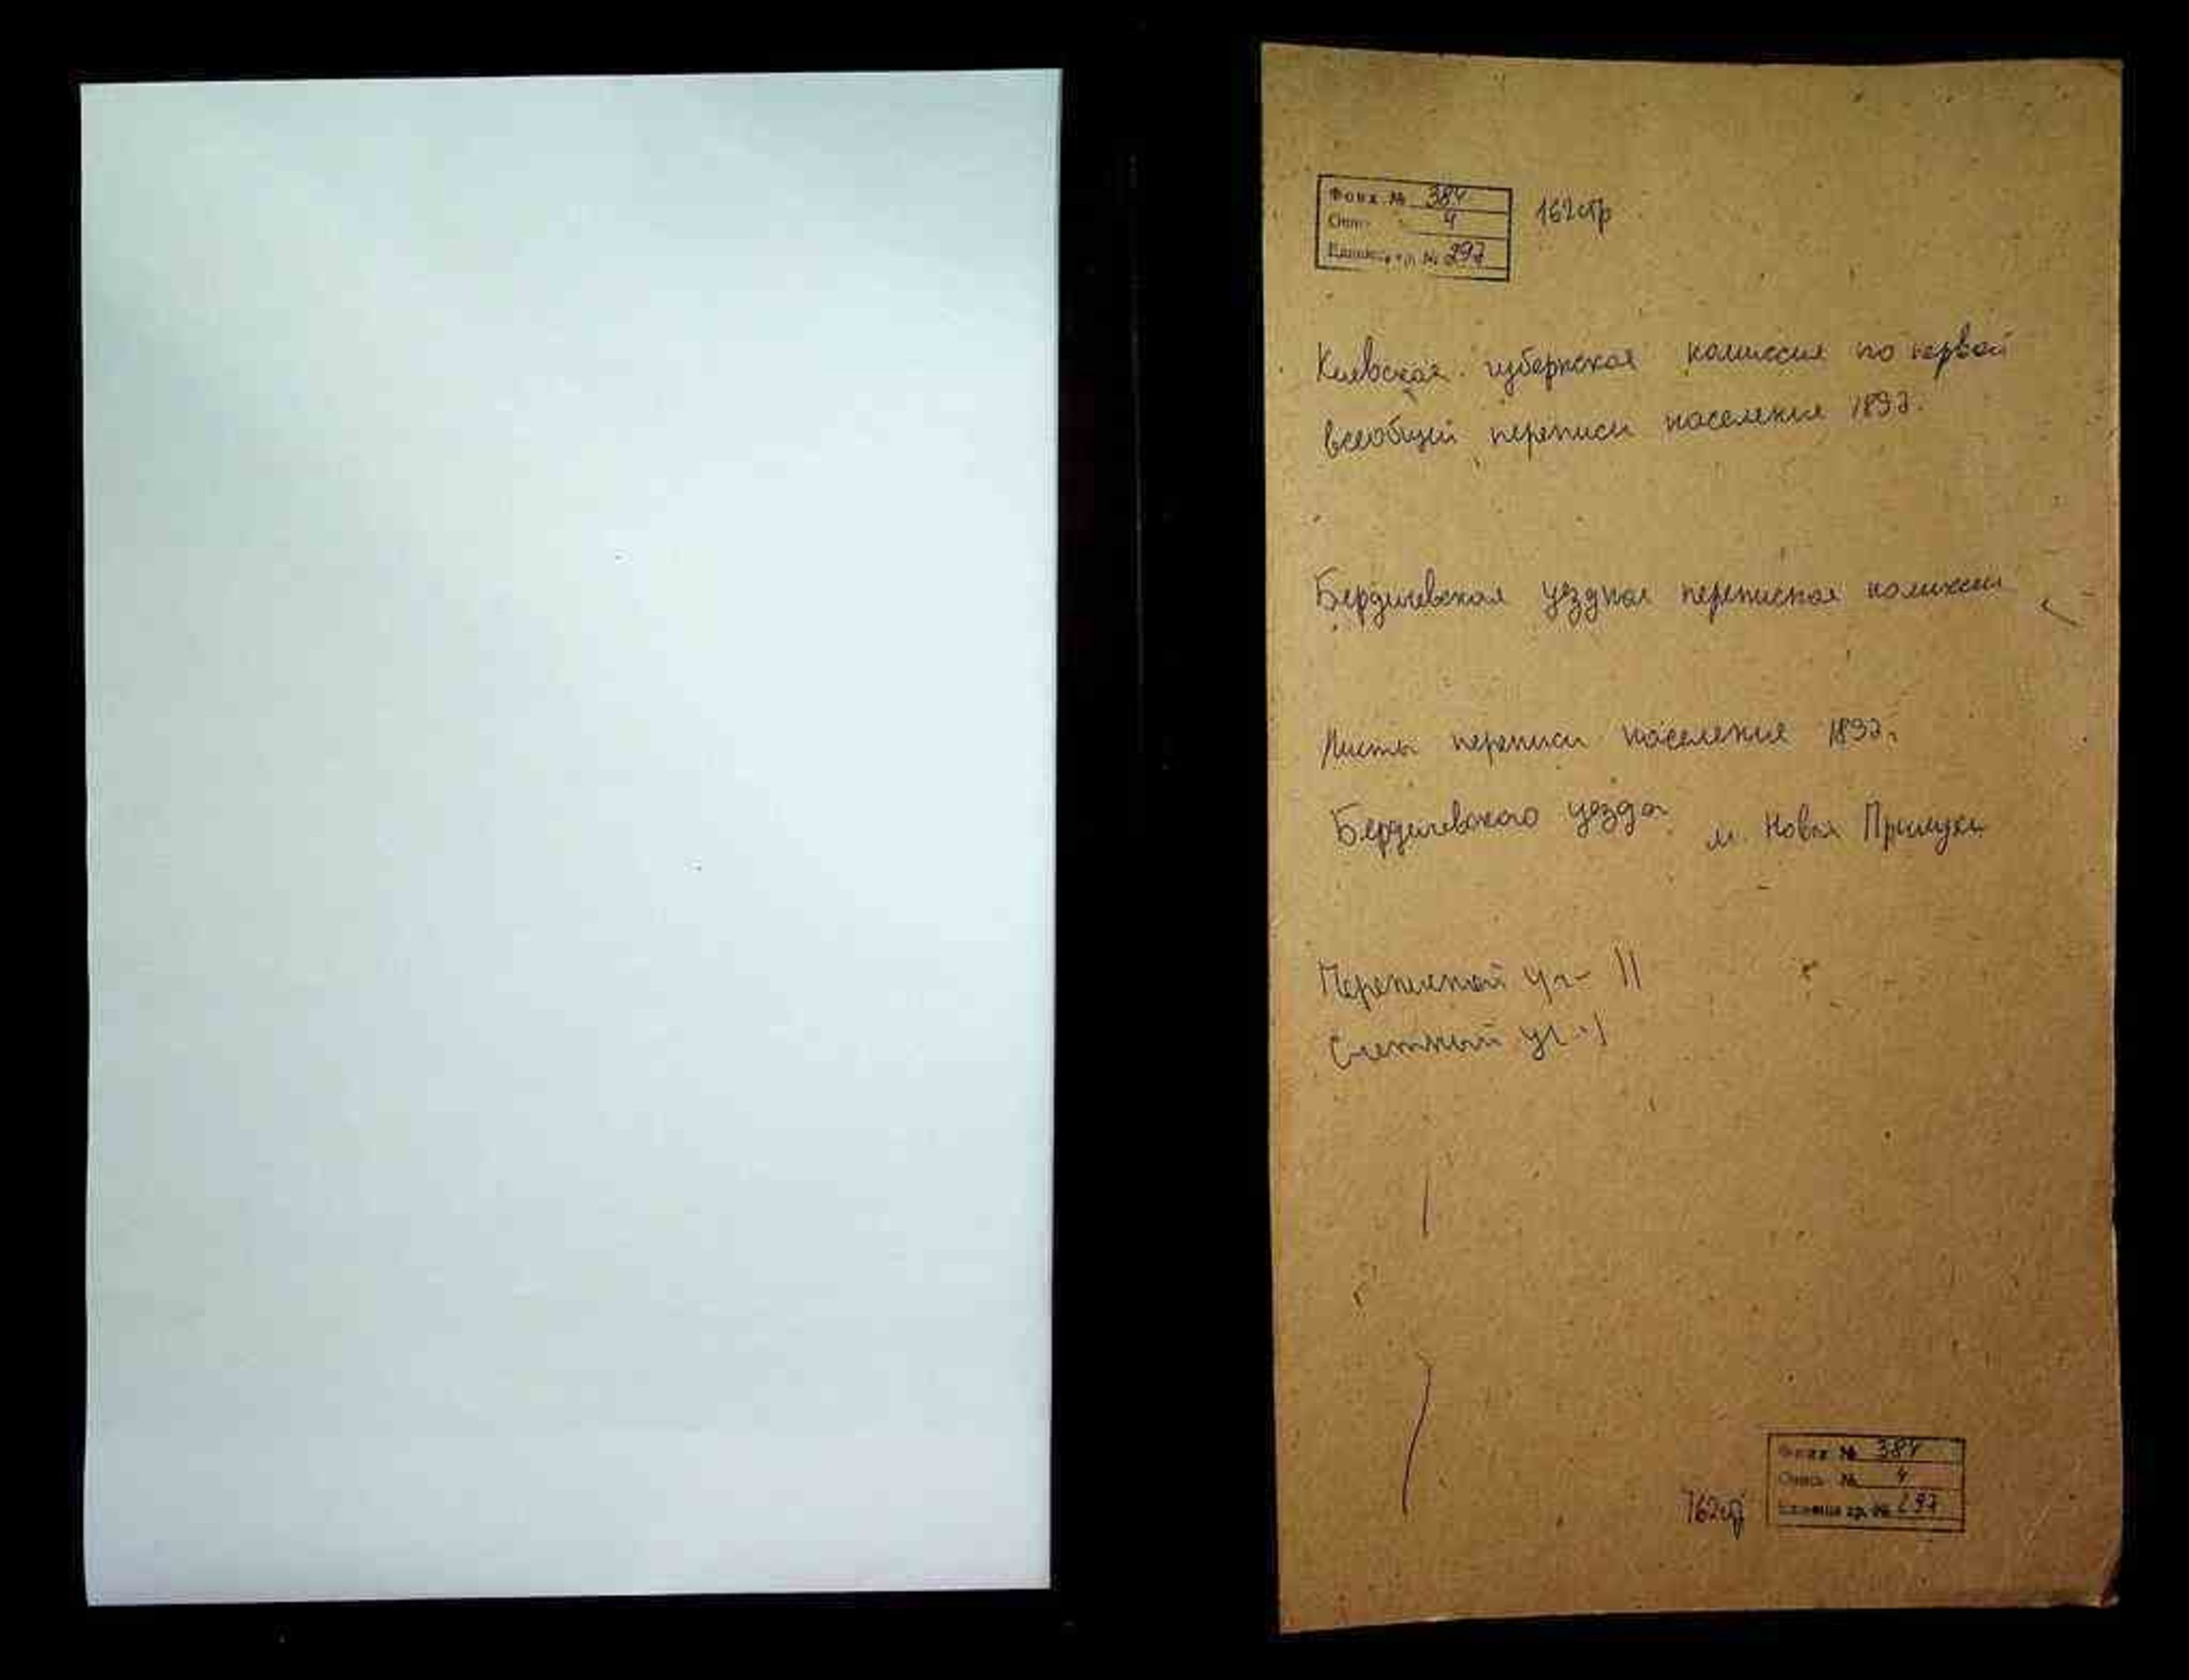 Фонд № 384
Опись 4
Единица хр. № 297
162стр
Киевская губернская комиссия по первой
всеобщей переписи населения 1897.
Бердичевская уездная переписная комиссия
Листы переписи населения 1897.
Бердичевского уезда м. Новая Прилука
Переписной уч- II
Счетный уч-I
Фонд № 384
Опись № 4
Единица хр. № 297
162стр